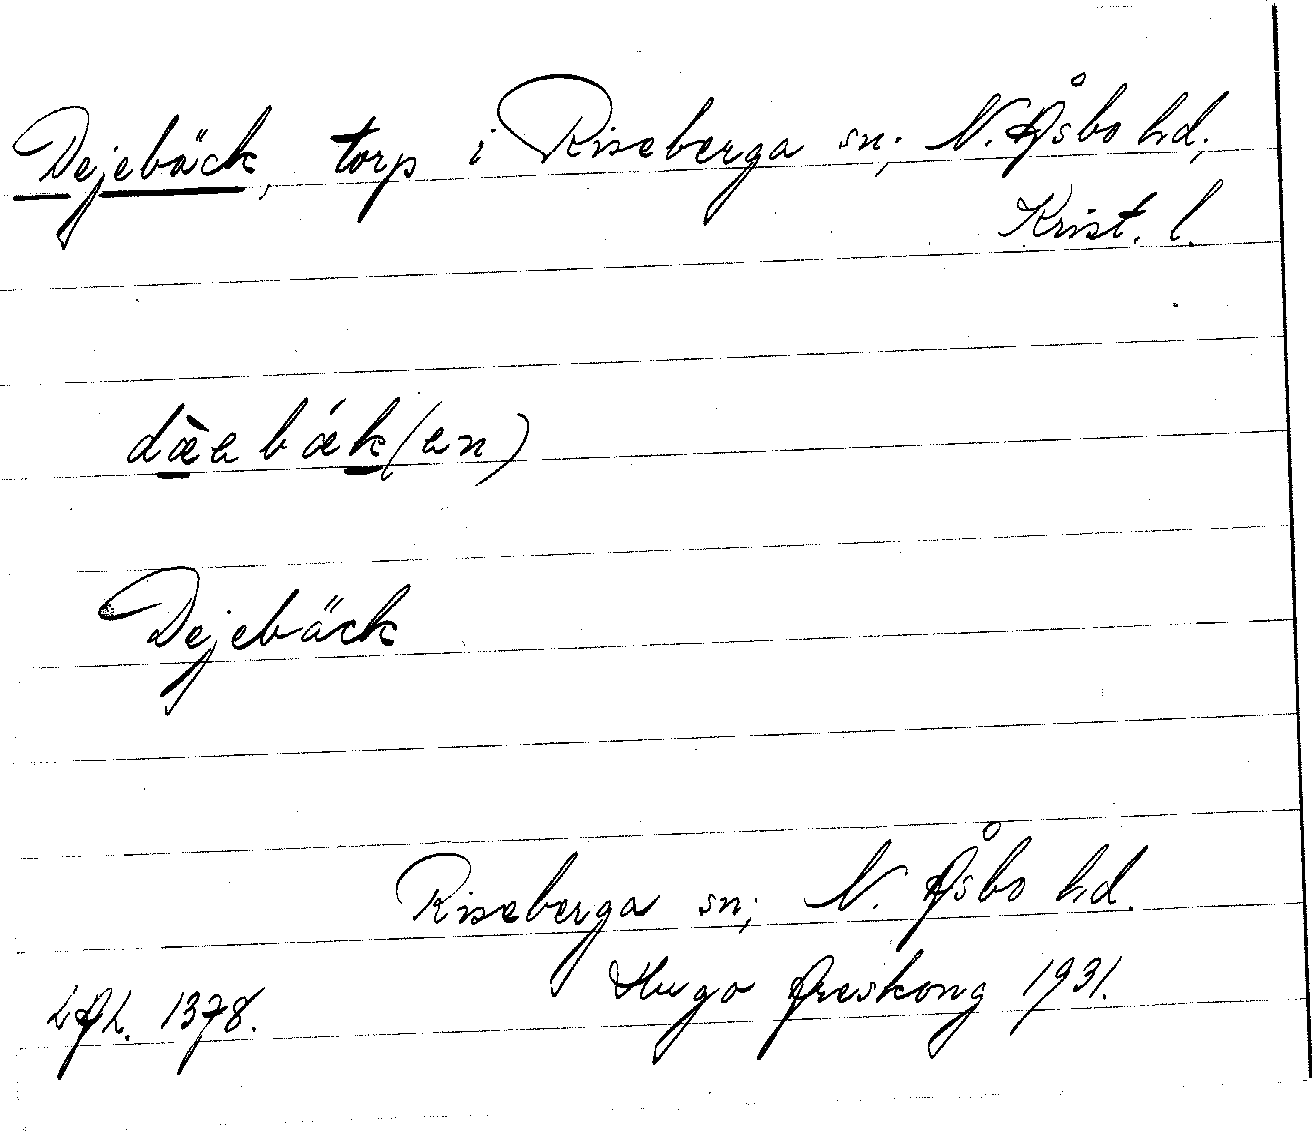 Dejebäck, torp i Riseberga sn; N. Åsbo hd;
Krist. l.
dæ̀ebǽk(en)
Dejebäck
Riseberga sn; N. Åsbo hd.
LAL. 1378. Hugo Areskoug 1931.